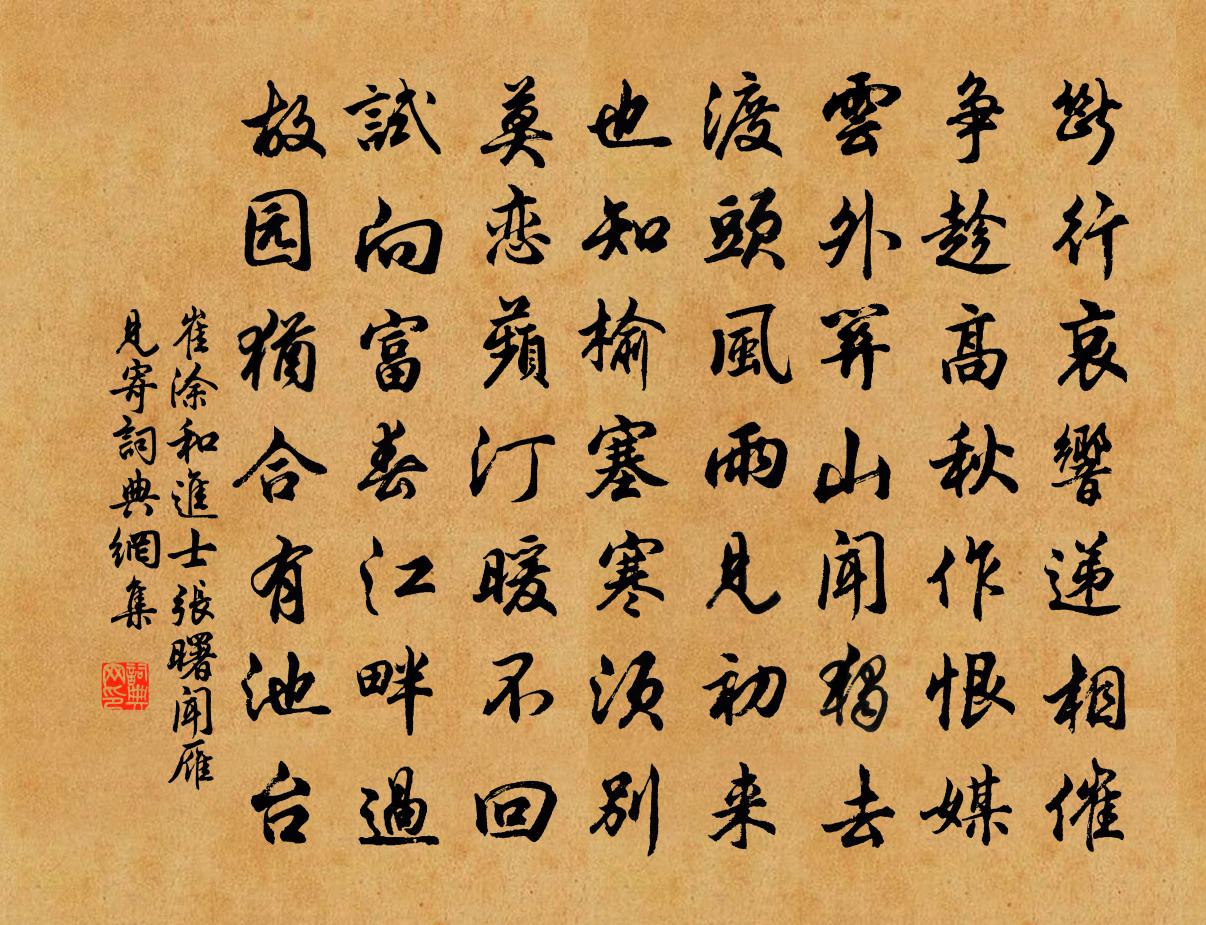 斷行哀響递相催
争趁高秋作恨媒
雲外關山聞獨去
渡頭風雨見初来
也知榆塞寒須别
莫恋蘋汀暖不回
試向富春江畔過
故园猶合有池台
崔涂和進士張曙聞雁
見寄詞典網集
詞典
网印